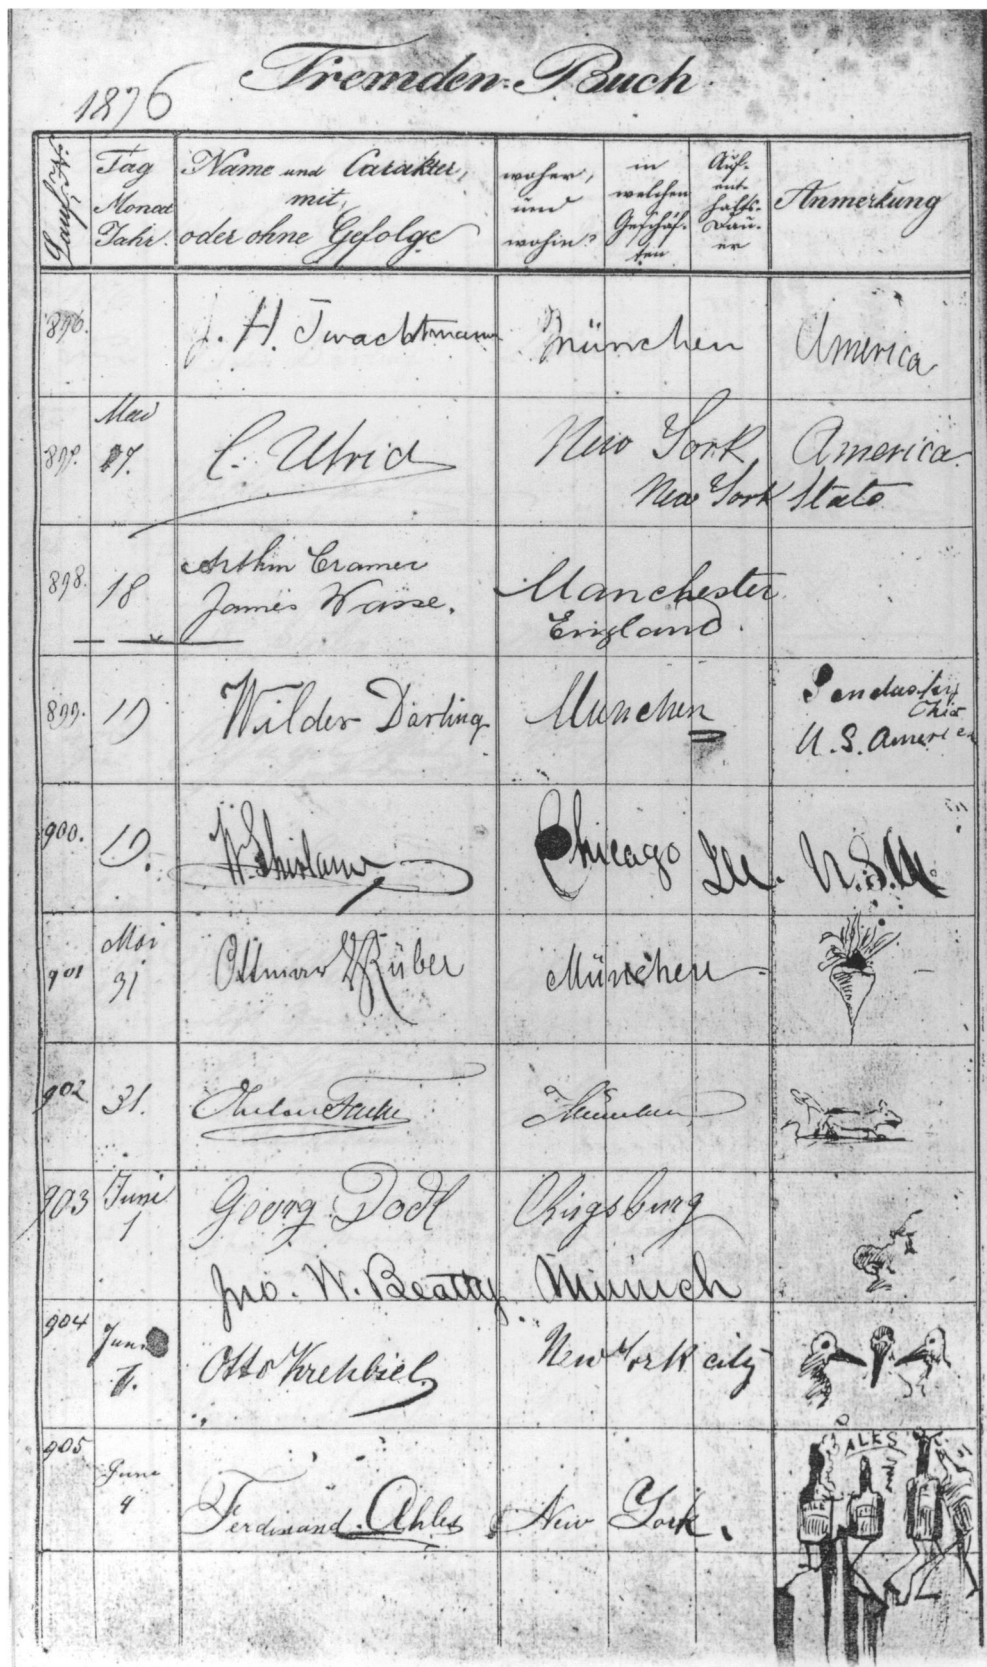 1876
Fremden-Buch
Lauf. N.
Tag
Monat
Jahr.
Name und Carakter,
mit,
oder ohne Gefolge
woher,
und
wohin?
in
welchen
Geschäf-
ten
Auf-
ent-
halts-
Dau-
er
Anmerkung
896. J. H. Twachtmann München America
897. Mai 17. C. Ulrich New York America
New York State
898. 18 Arthur Cramer
James Wasse. Manchester
England.
899. 19 Wilder Darling München
Sandusky
Ohio
U. S. America
900. 19. Chicago Ill. U.S.A.
901 Mai 31 Ottmar München
902 31. München
903 Juni 1 Georg Dodl Augsburg
Jno. W. Beatty Munich
904 Juni 1. Otto Krehbiel New York city
905. June 4 Ferdinand Ahles New York.
ALES
ALE